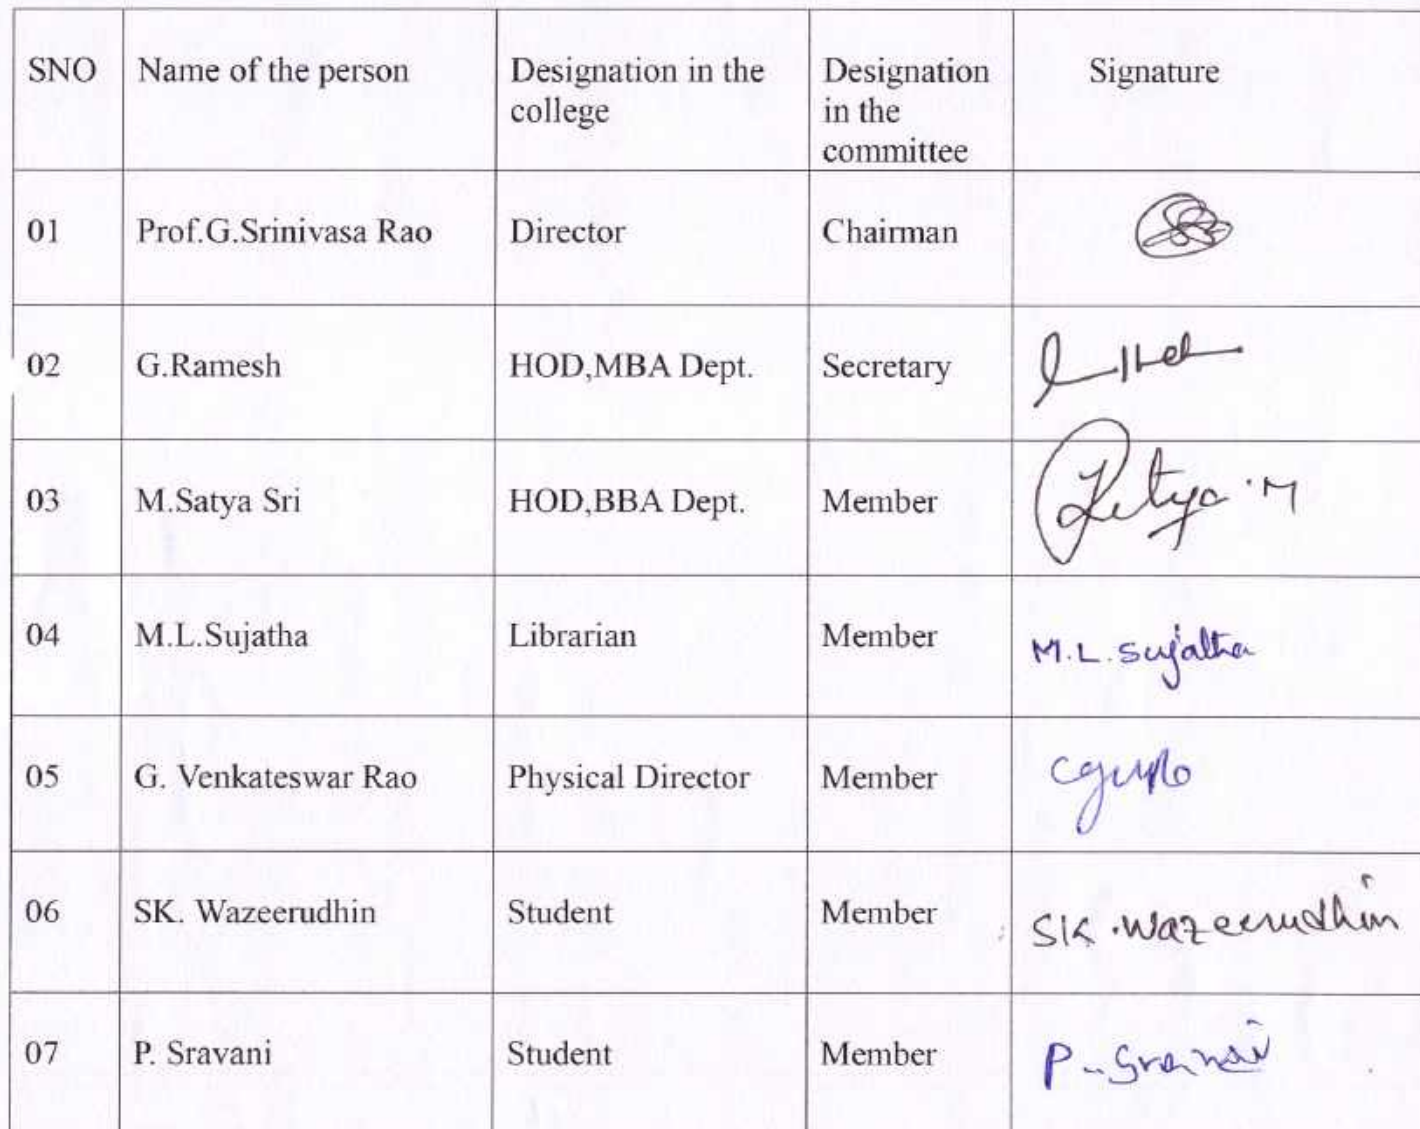 SNO Name of the person Designation in the Designation Signature
college in the
committee
01 Prof.G.Srinivasa Rao Director Chairman
02 G.Ramesh HOD,MBA Dept. Secretary
03 M.Satya Sri HOD,BBA Dept. Member
04 M.L.Sujatha Librarian Member M.L.Sujatha
05 G. Venkateswar Rao Physical Director Member
06 SK. Wazeerudhin Student Member SK.Wazeerudhin
07 P. Sravani Student Member